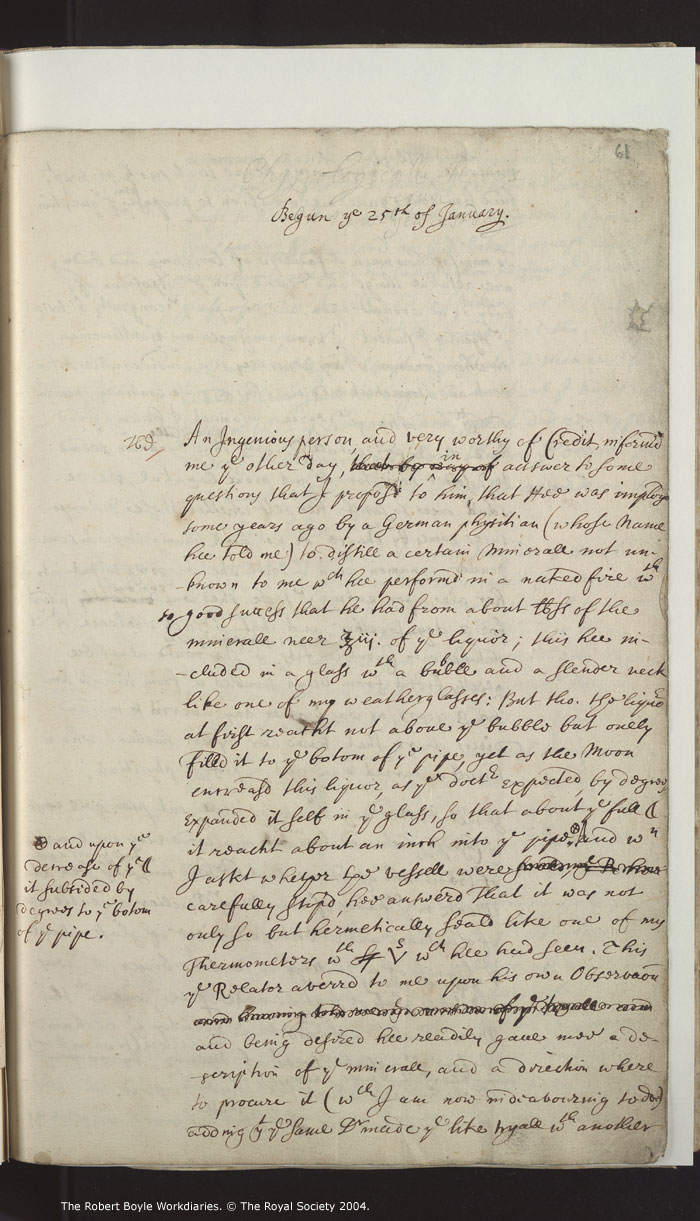 61
Begun ye 25th of January.
769
An Ingenious person, and very worthy of Credit, informd
me ye other day, that by way of in answer to some
questions that I propos'd to him, that Hee was imploy'd
some years ago by a German physitian (whose Name
hee told me) to distill a certain Minerall not un-
-known to me wch hee performd in a naked fire wth
so good success that he had from about of the
minerall neer ℥iij. of ye liquor; this hee in-
-cluded in a glass wth a bubble and a slender neck
like one of my weatherglasses: But tho. the liquor
at first reacht not above ye bubble but onely
filld it to ye botom of ye pipe, yet as the Moon
encreasd this liquor, as ye Doctr expected, by degrees
expanded it self in ye glass, so that about ye full ☾
it reacht about an inch into ye pipe, ⊗ and wn
I askt whether the vessell were
carefully stop'd, hee answerd That it was not
only so but hermetically seald like one of my
Thermometers wth wch hee had seen. This
ye Relator averrd to me upon his own Observaon
and being desired hee readily gave mee a de-
-scription of ye minerall, and a direction where
to procure it (wch I am now indeavouring to do)
adding yt ye same Dr made ye like tryall wth another
⊗ and upon ye
decrease of ye ☾
it subsided by
degrees to ye botom
of ye pipe.
The Robert Boyle Workdiaries. © The Royal Society 2004.